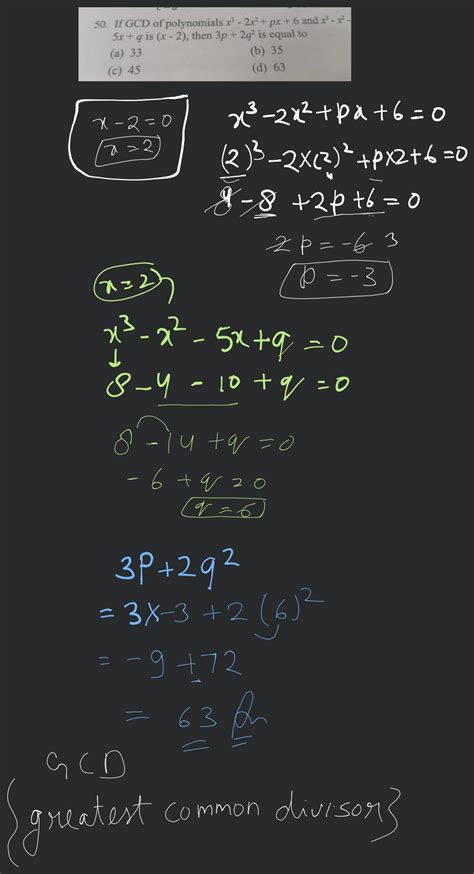 50. If GCD of polynomials x³ - 2x² + px + 6 and x³ - x² -
5x + q is (x - 2), then 3p + 2q² is equal to
(a) 33 (b) 35
(c) 45 (d) 63
x-2=0
x=2
x³-2x²+px+6=0
(2)³-2×(2)²+p×2+6=0
8-8+2p+6=0
2p=-6 3
p=-3
x=2
x³-x²-5x+q=0
8-4-10+q=0
8-14+q=0
-6+q=0
q=6
3p+2q²
=3×-3+2(6)²
=-9+72
=63
GCD
{greatest common divisor}